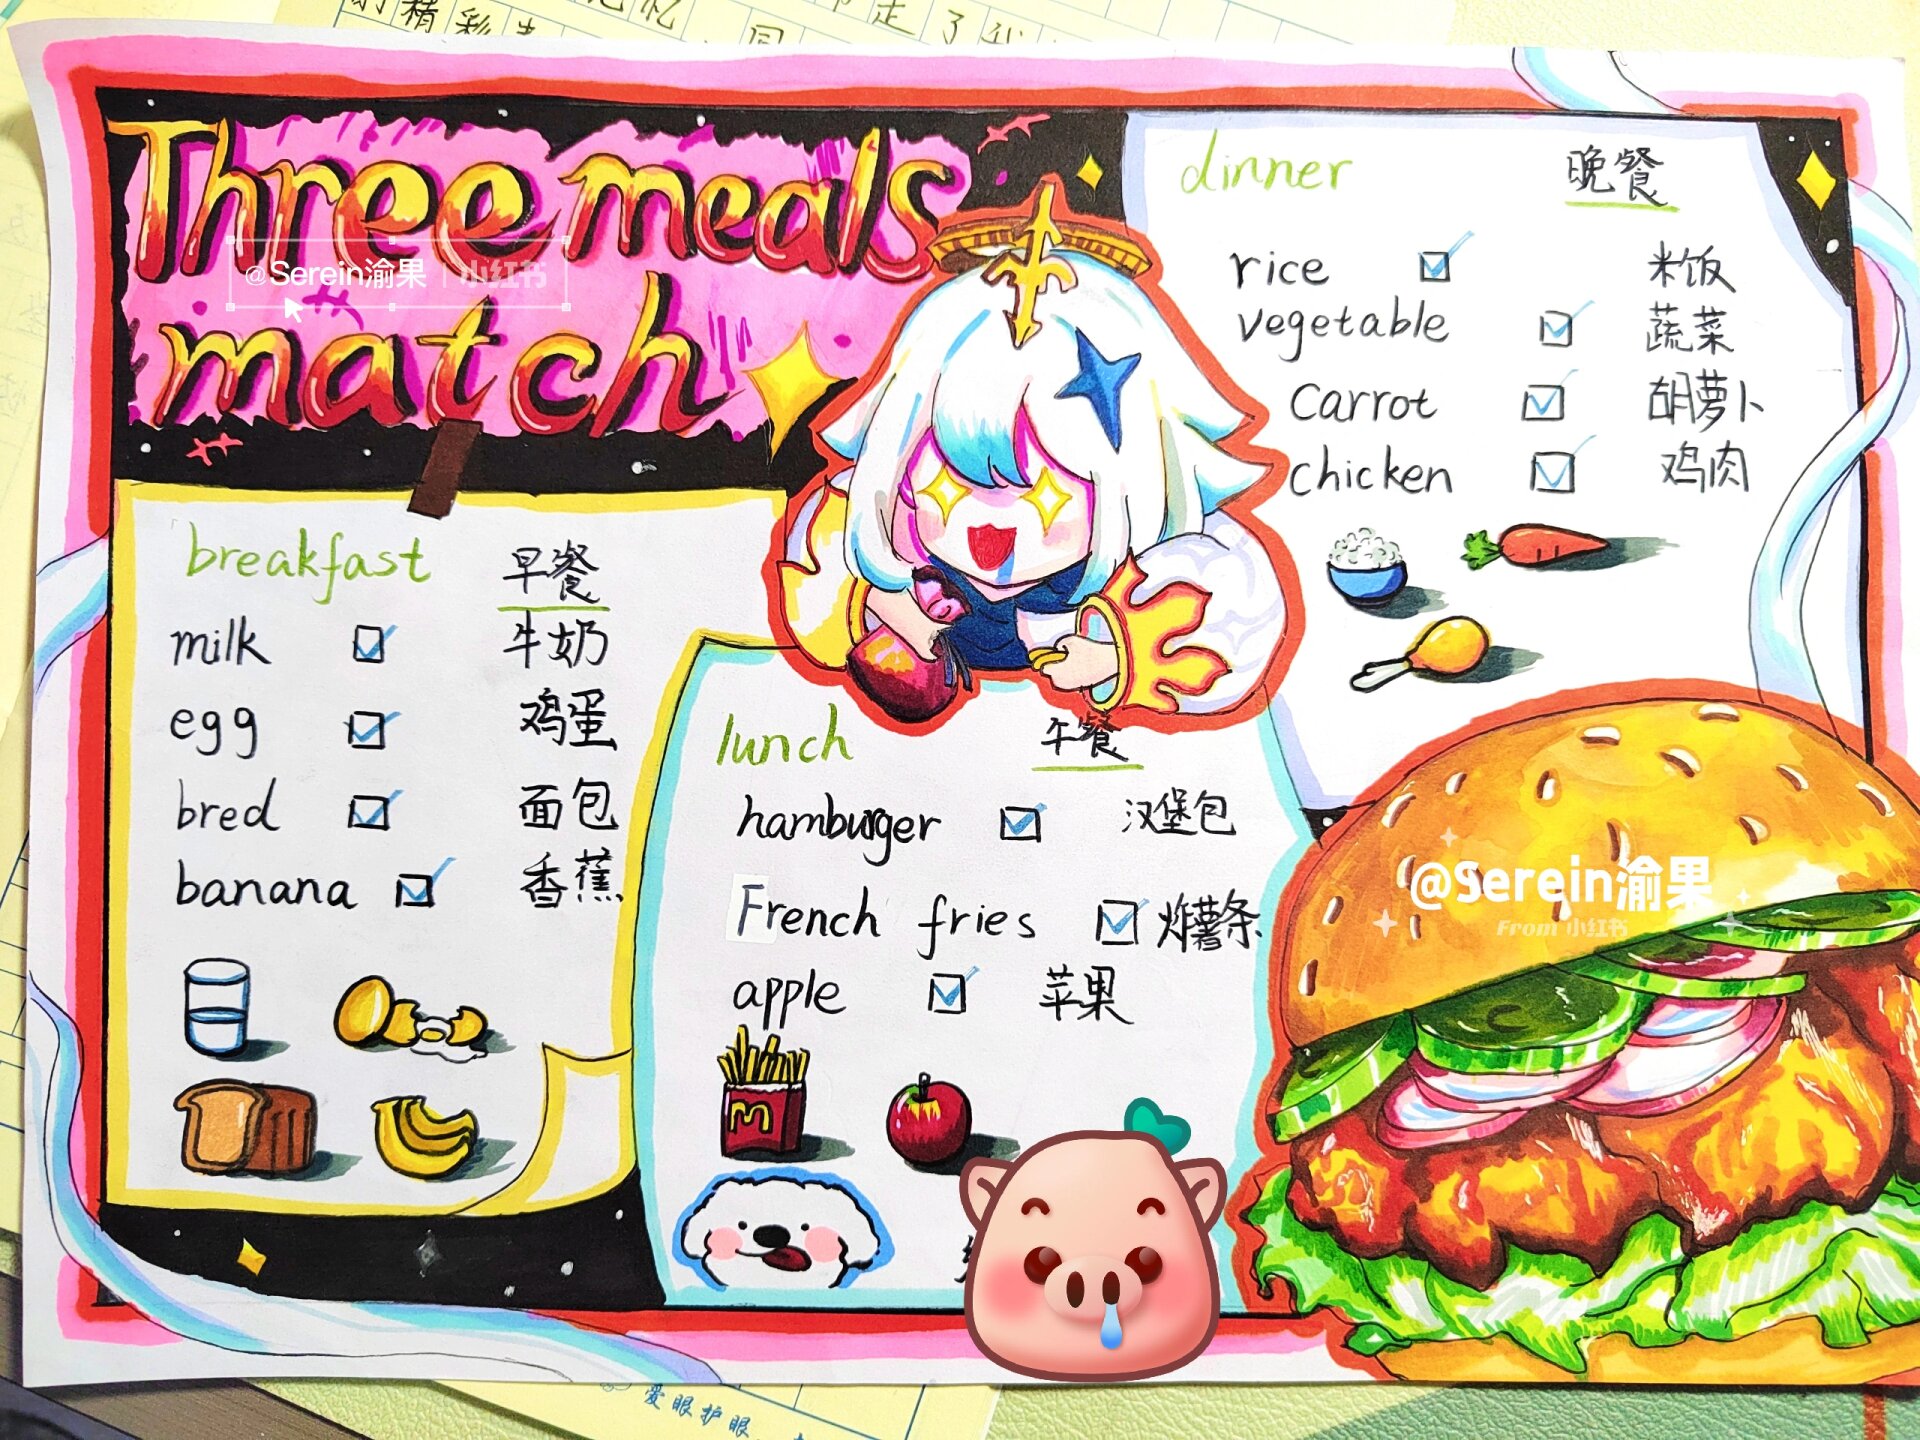 Three meals
match
@Serein渝果 | 小红书
breakfast 早餐
milk 牛奶
egg 鸡蛋
bred 面包
banana 香蕉
lunch 午餐
hamburger 汉堡包
French fries 炸薯条
apple 苹果
M
dinner 晚餐
rice 米饭
vegetable 蔬菜
carrot 胡萝卜
chicken 鸡肉
@Serein渝果
From 小红书
爱眼护眼